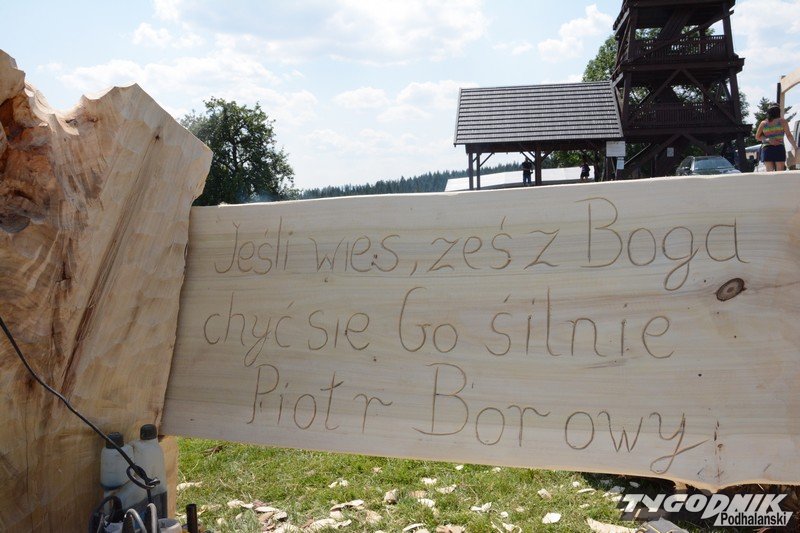 Jeśli wies, ześ z Boga
chyć sie Go śilnie
Piotr Borowy
TYGODNIK
Podhalański